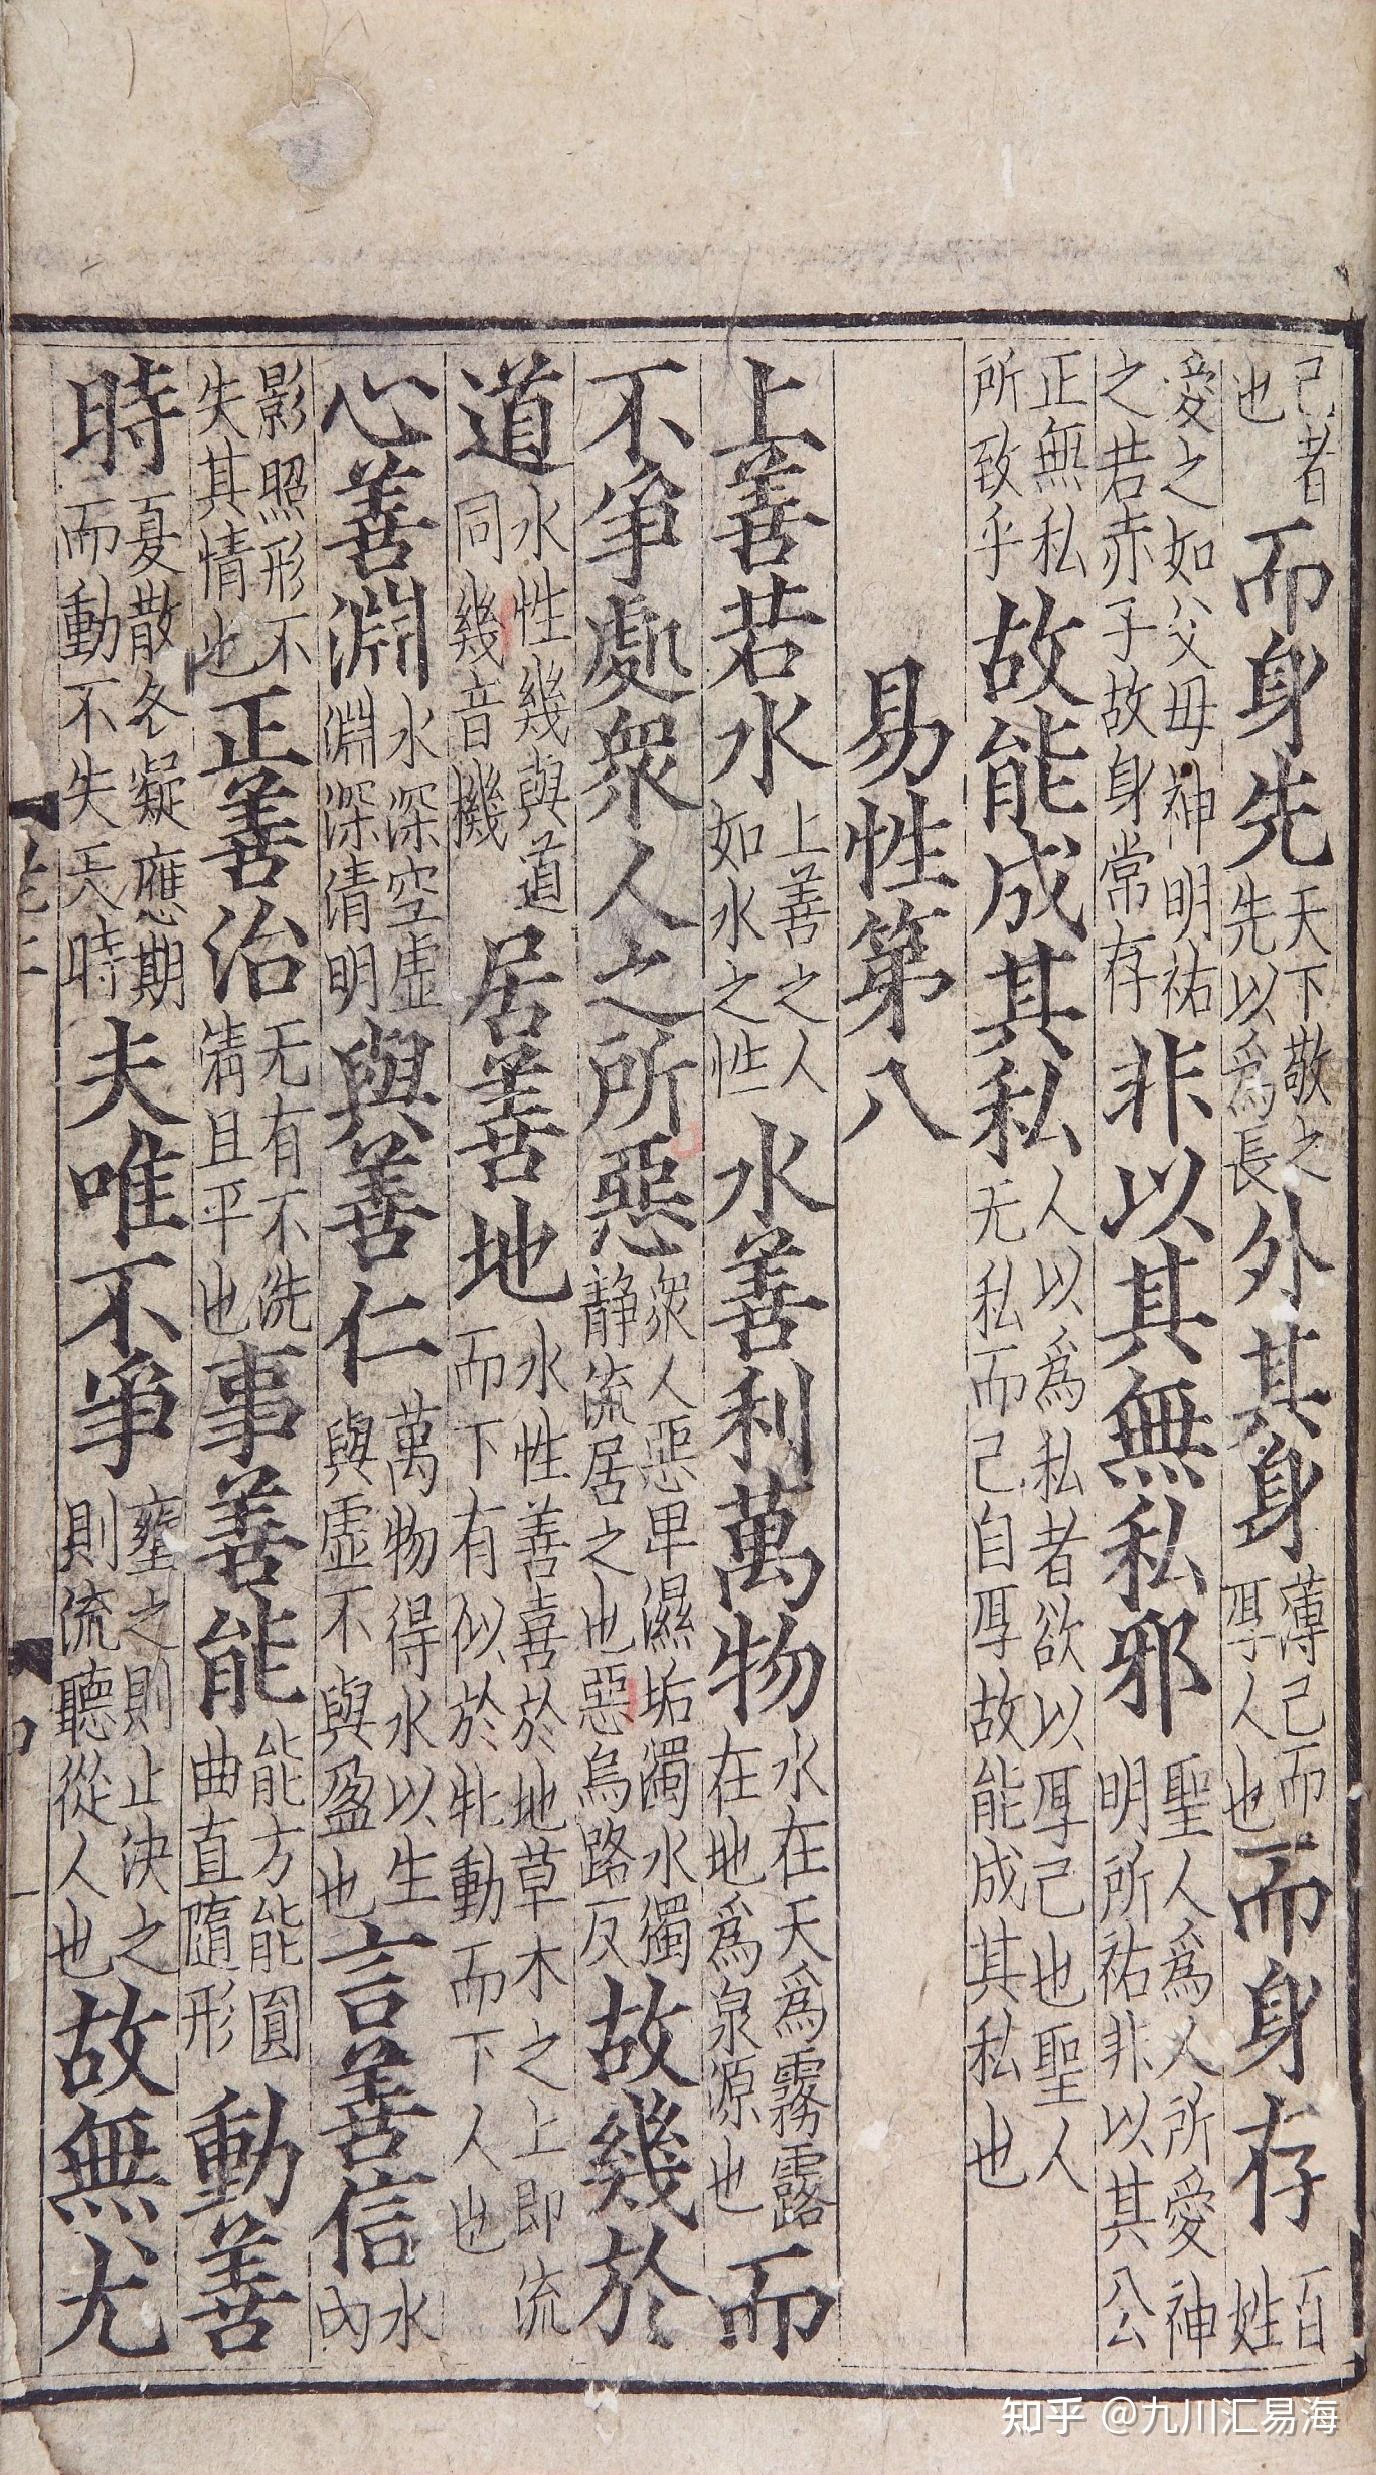 己者也而身先天下敬之先以爲長外其身薄己而厚人也而身存百姓
愛之如父母神明祐之若赤子故身常存非以其無私邪聖人爲人所愛神明所祐非以其公
正無私所致乎故能成其私人以爲私者欲以厚己也聖人无私而己自厚故能成其私也
易性第八
上善若水上善之人如水之性水善利萬物水在天爲霧露在地爲泉源也而
不爭處衆人之所惡衆人惡卑濕垢濁水獨静流居之也惡烏路反故幾於
道水性幾與道同幾音機居善地水性善喜於地草木之上即流而下有似於牝動而下人也
心善淵水深空虛淵深清明與善仁萬物得水以生與虛不與盈也言善信水內
影照形不失其情也正善治无有不洗清且平也事善能能方能圓曲直隨形動善
時夏散冬凝應期而動不失天時夫唯不爭壅之則止決之則流聽從人也故無尤
知乎 @九川汇易海